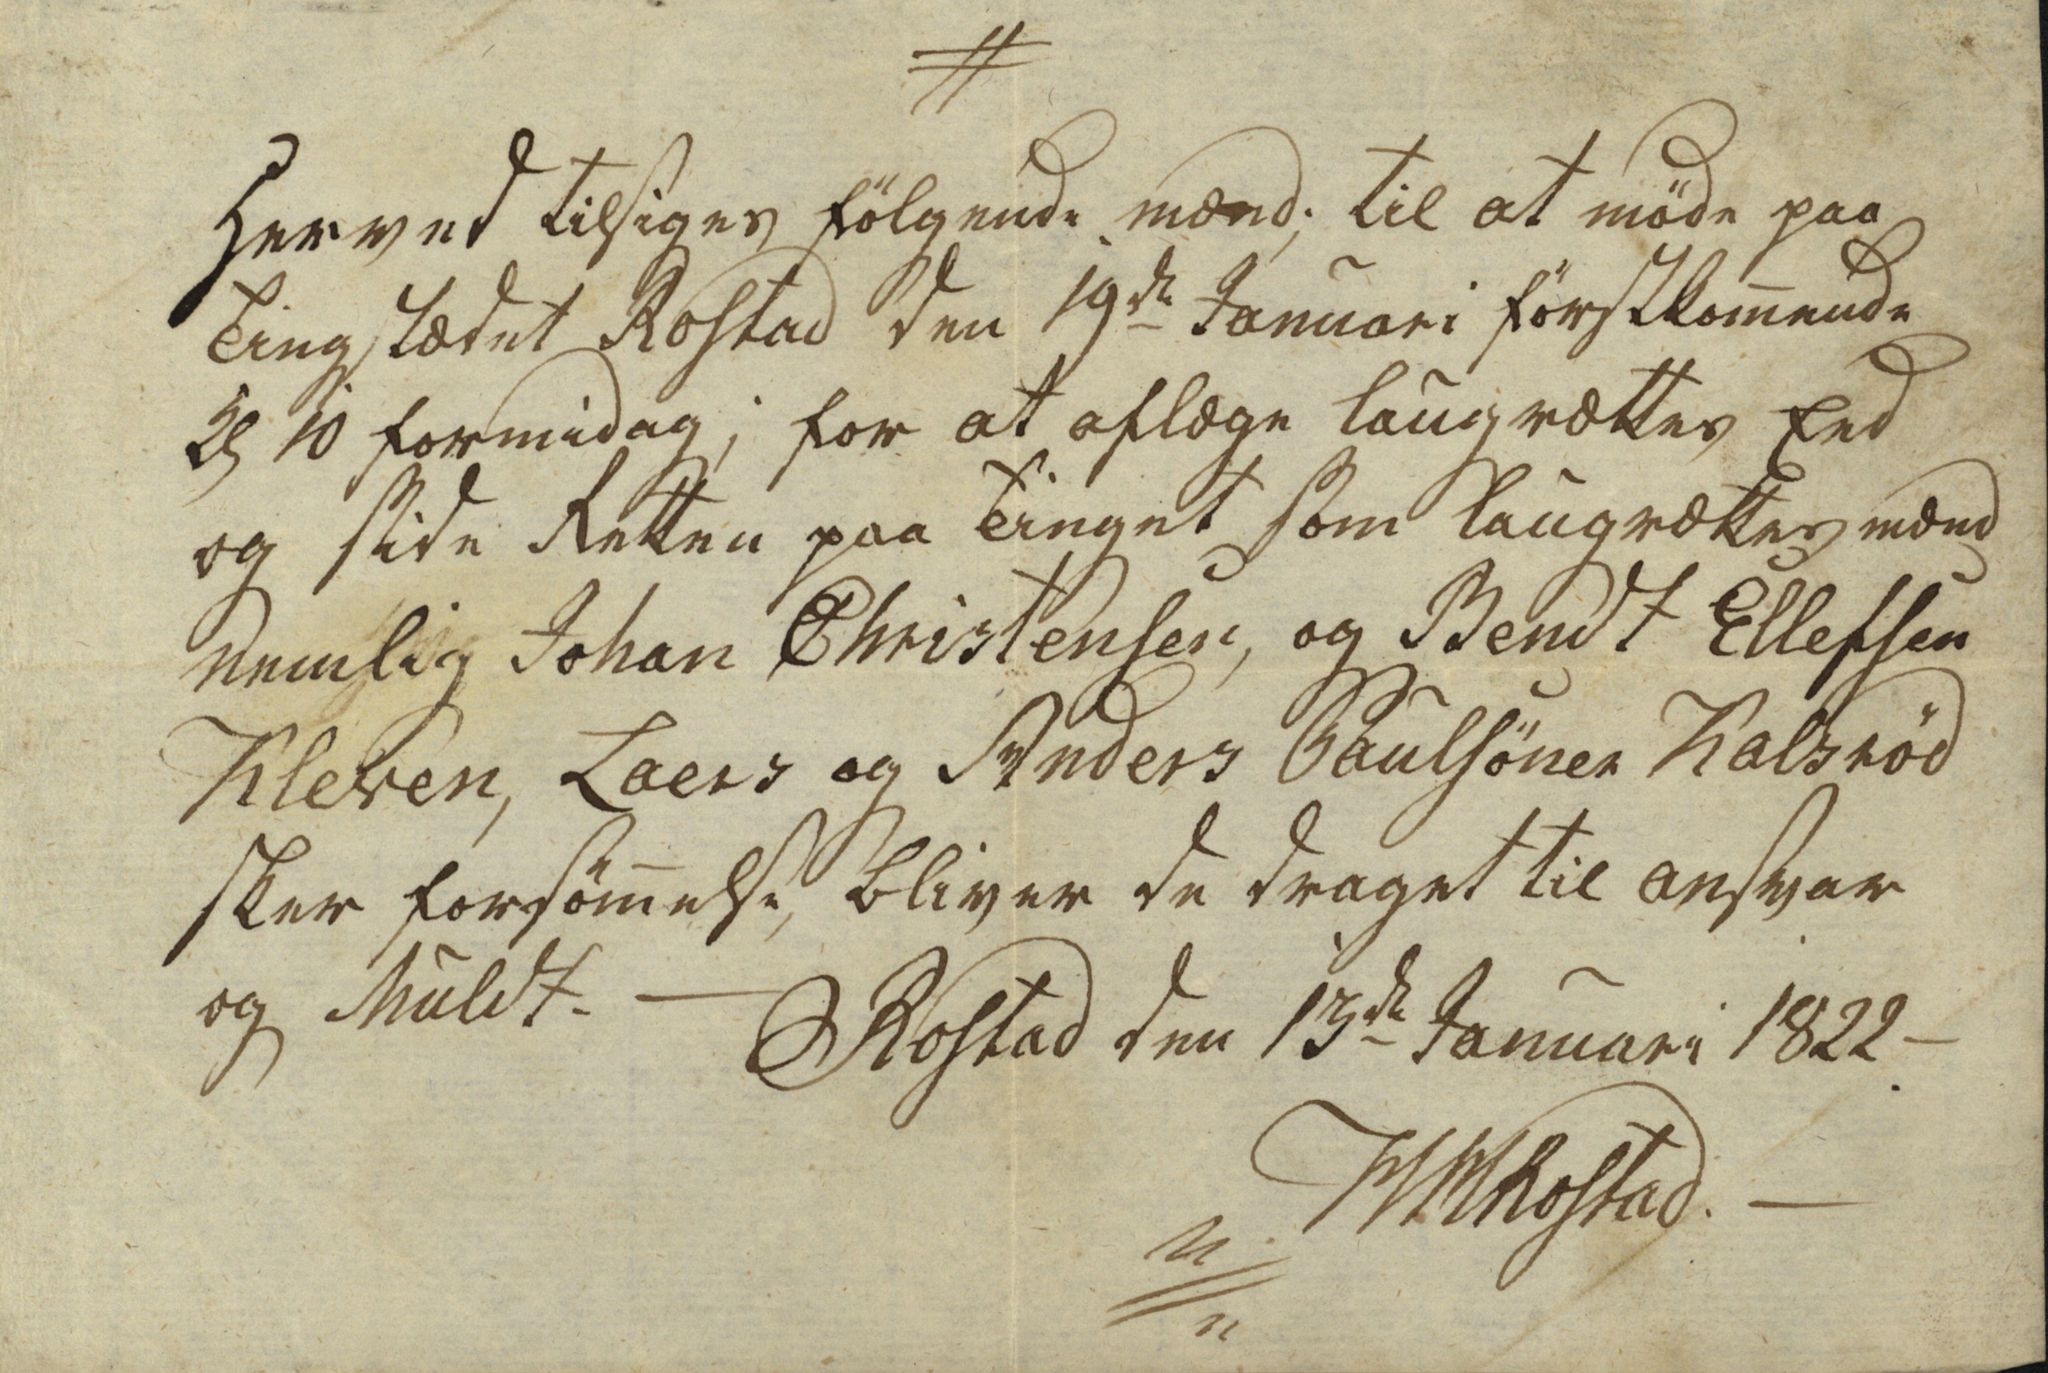 Herved tilsiges följende mænd; til at möde paa
Tingstædet Rostad den 19de Januari förstkommende
Kl 10 formidag, for at aflæge laugrettes Eed
og side Retten paa Tinget som laugrættesmænd
nemlig Johan Christensen, og Bendt Ellefsen
Kleven, Laers og Anders Paulsöner Kalsröd
skér forsömmelse, bliver de draget til ansvar
og Muldt. — Rostad den 13de Januari 1822 —
Rostad. —